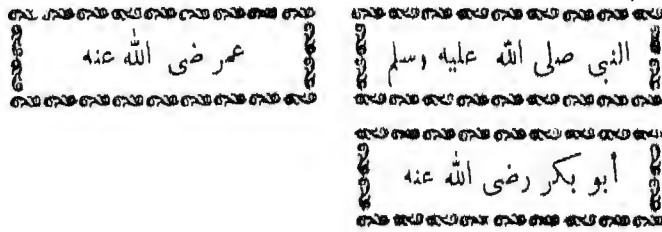 النبى صلى الله عليه وسلم
عمر ضى الله عنه
أبو بكر رضى الله عنه